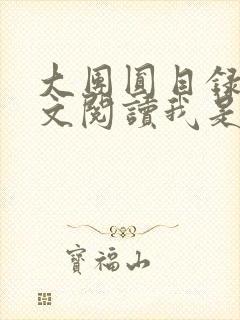 大團圓目錄
文閱讀我是
寶福山